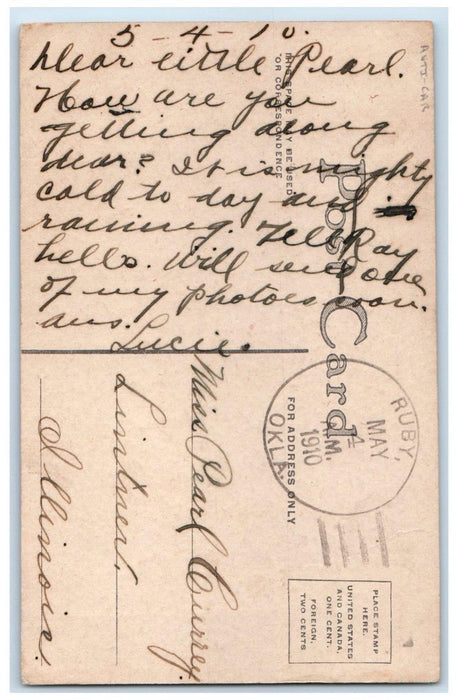 5 - 4 - 10.
Dear little Pearl.
How are you
getting along
dear? It is mighty
cold to day and
raining. Tell Ray
hello. Will send one
of my photoes soon.
ans.
Lucie.
Post Card
THIS SPACE MAY BE USED
FOR CORRESPONDENCE
FOR ADDRESS ONLY
Miss Pearl Currey
Lintner.
Illinois.
RUBY,
MAY
4
A.M.
1910
OKLA.
PLACE STAMP
HERE.
UNITED STATES
AND CANADA,
ONE CENT.
FOREIGN,
TWO CENTS
AUTO-CAR